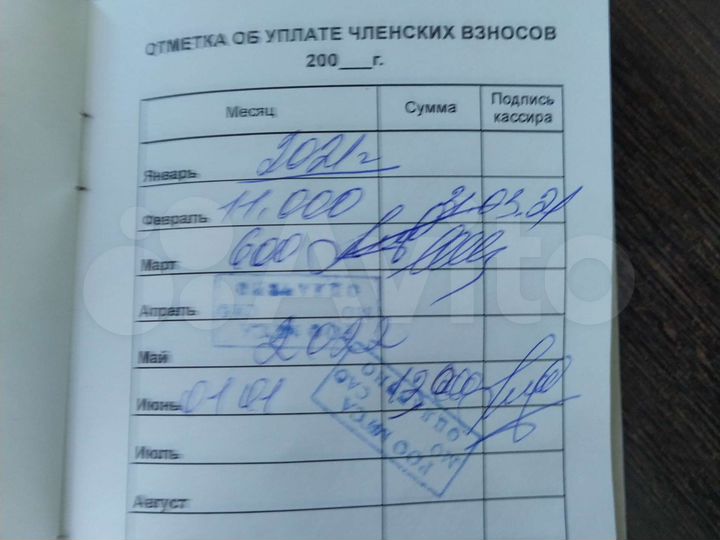 ОТМЕТКА ОБ УПЛАТЕ ЧЛЕНСКИХ ВЗНОСОВ
200___г.
Месяц Сумма Подпись кассира
Январь 2021г
Февраль 11.000 31.03.21
Март 600
Апрель
Май 2022
Июнь 01 01 12,000
Июль
Август
Avito